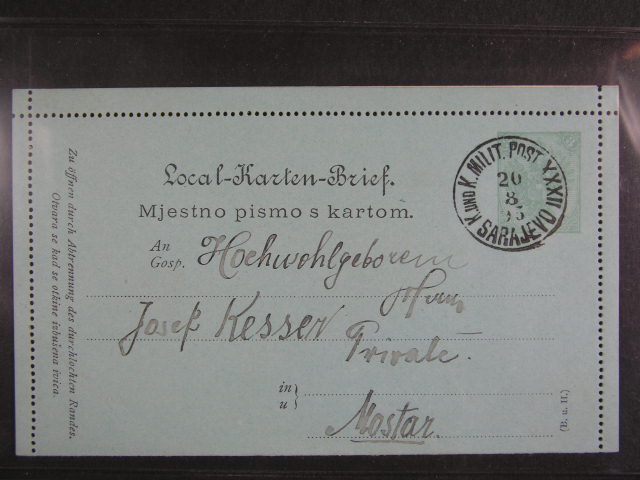 Local-Karten-Brief.
Mjestno pismo s kartom.
An
Gosp.
Hochwohlgeborem
Herrn
Josef Kesser
Private.
in
u
Mostar.
(B. u. H.)
Zu öffnen durch Abtrennung des durchlochten Randes.
Otvara se kad se otkine izbušena ivica.
K. UND K. MILIT. POST XXXII
20
8
95
SARAJEVO